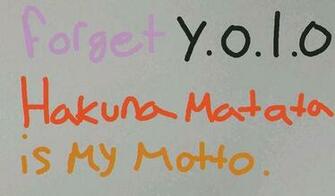 Forget Y.O.l.O
Hakuna Matata
is My Motto.